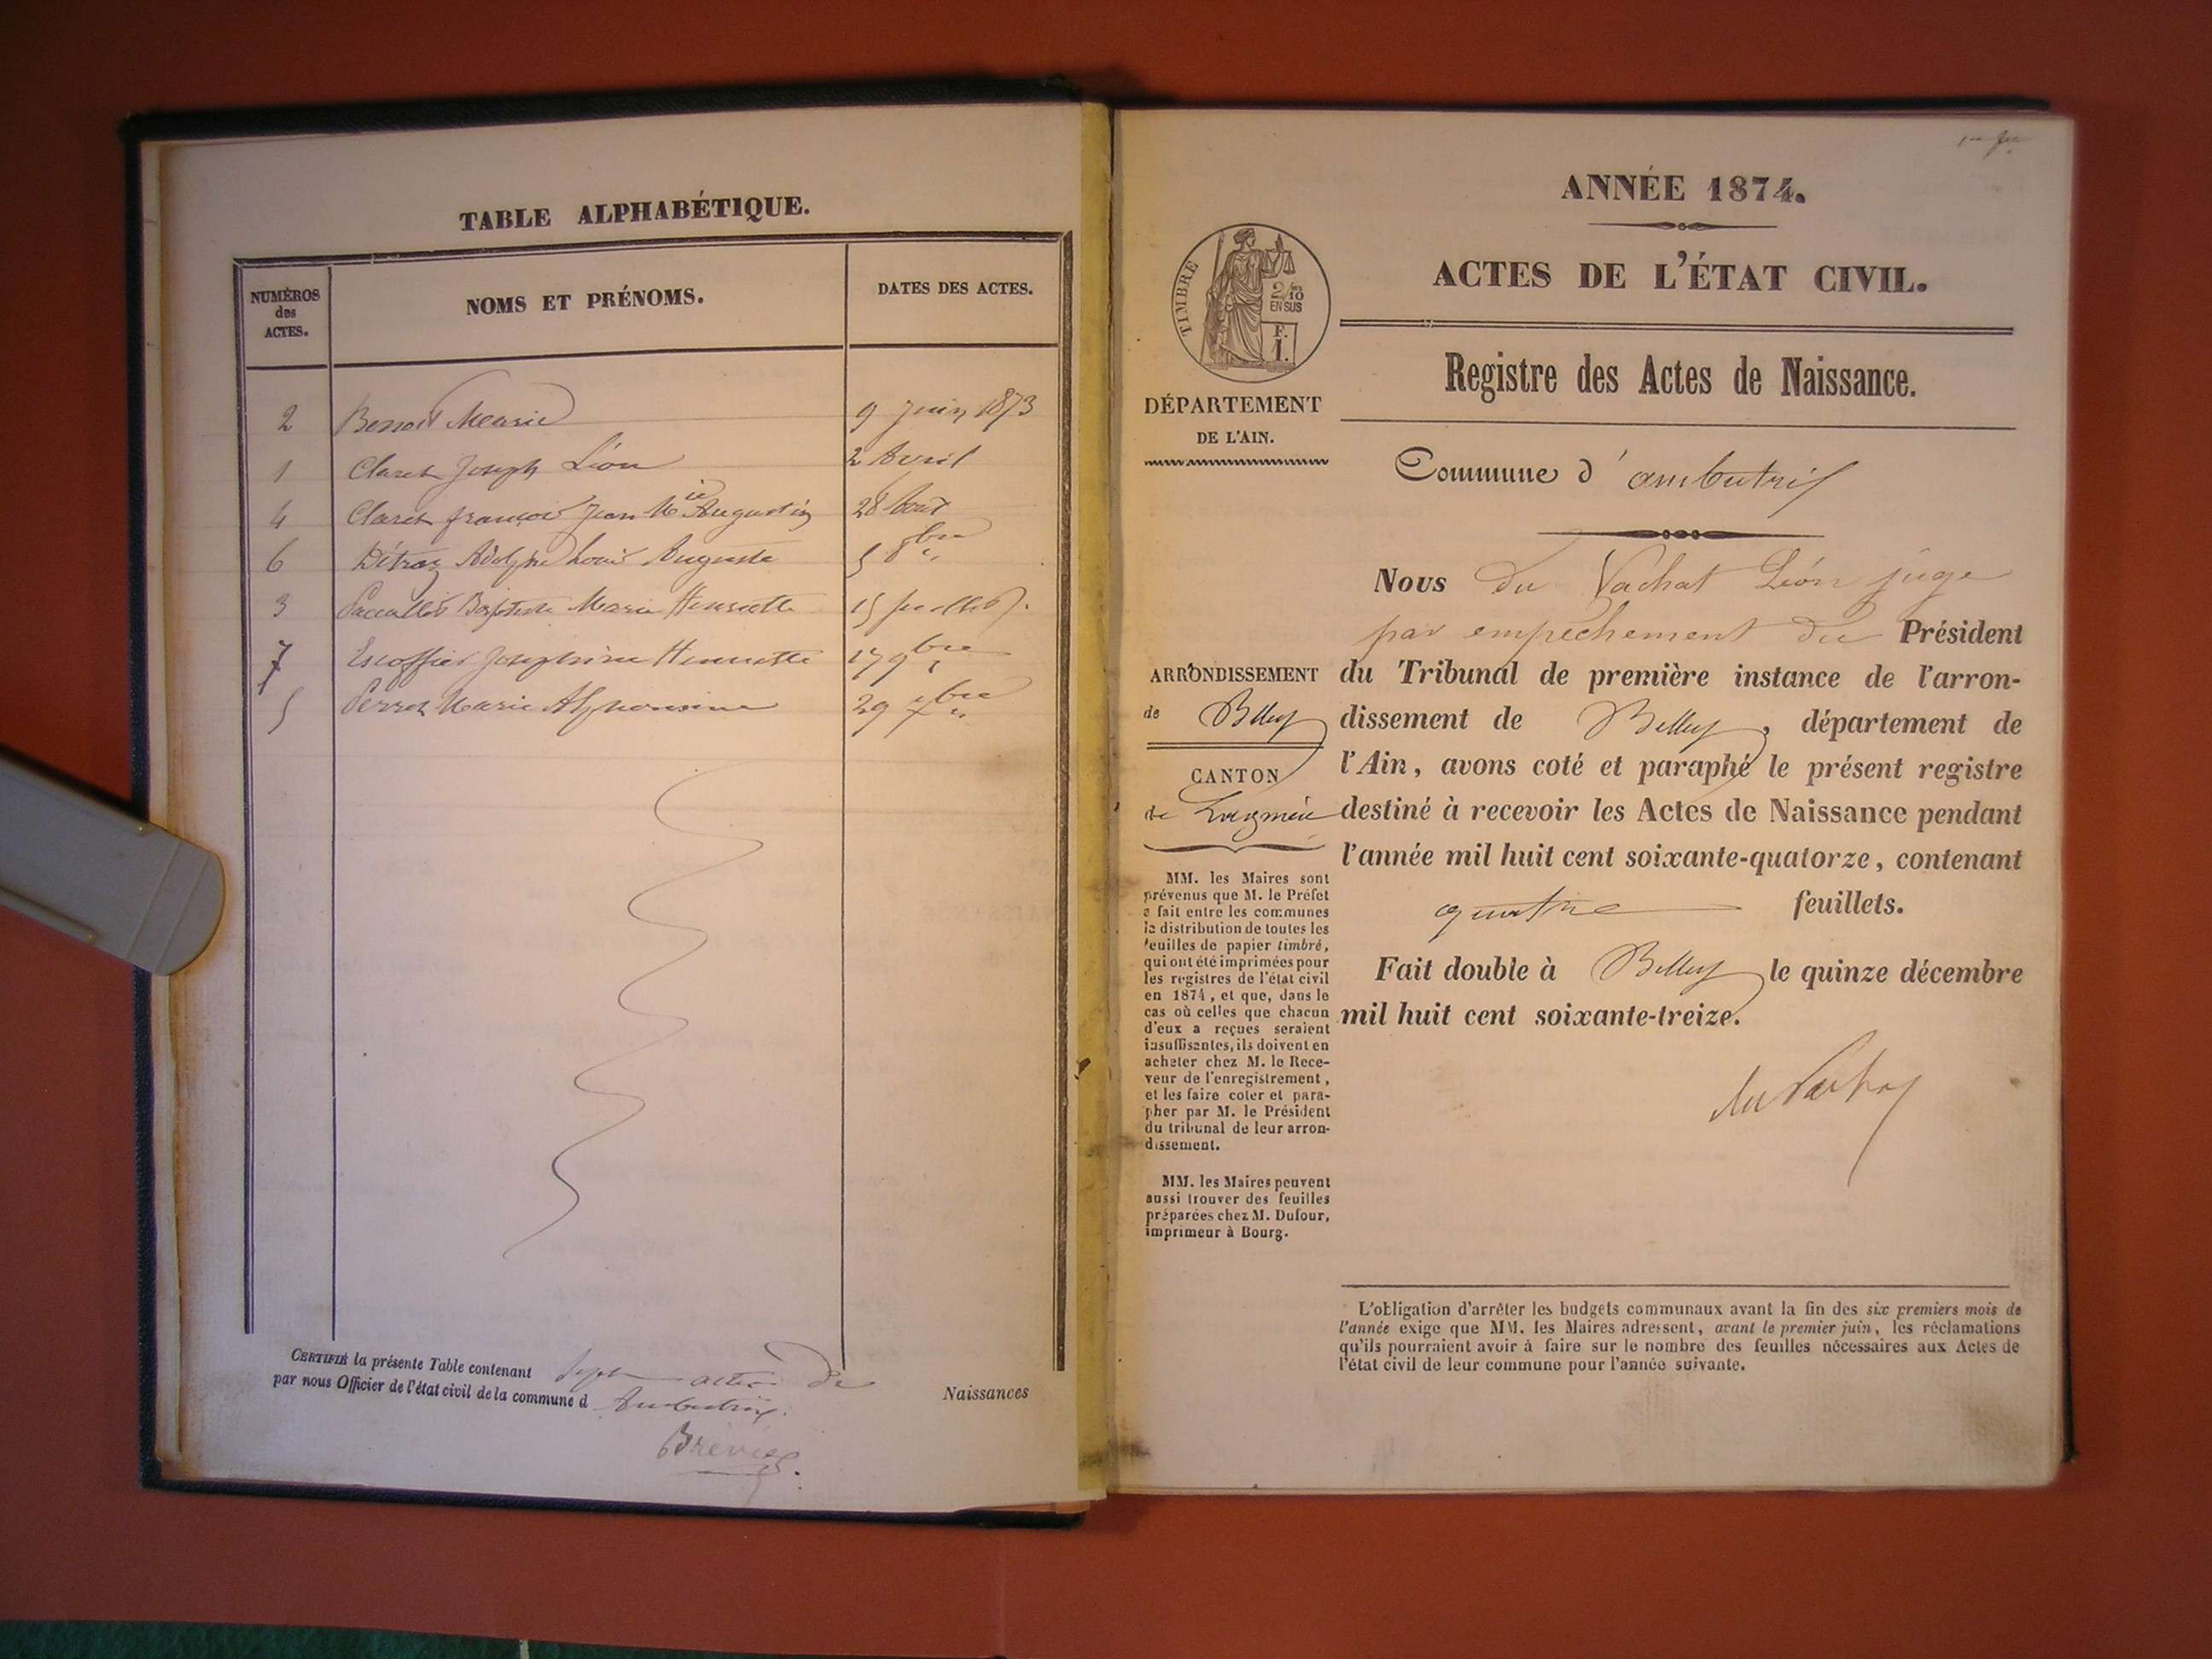 TABLE ALPHABÉTIQUE.
NUMÉROS des ACTES.
NOMS ET PRÉNOMS.
DATES DES ACTES.
2 Benoit Marie 9 Juin 1873
1 Claret Joseph Léon 2 Avril
4 Claret françois Jean Mie Augustin 28 Aout
6 Détraz Adolphe Louis Auguste 5 8bre "
3 Baptiste Marie Henriette 15 Juillet
7 Escoffier Joséphine Henriette 17 9bre "
5 Perret Marie Alphonsine 29 "
CERTIFIÉ la présente Table contenant Sept actes de Naissances
par nous Officier de l'état civil de la commune d Ambutrix.
ANNÉE 1874.
ACTES DE L'ÉTAT CIVIL.
TIMBRE
2/10
EN SUS
F.
1.
Registre des Actes de Naissance.
DÉPARTEMENT
DE L'AIN.
Commune d'ambutrix
Nous Du Vachat Léon juge
par empêchement du Président
du Tribunal de première instance de l'arron-
dissement de Belley, département de
l'Ain, avons coté et paraphé le présent registre
destiné à recevoir les Actes de Naissance pendant
l'année mil huit cent soixante-quatorze, contenant
quatre feuillets.
Fait double à Belley le quinze décembre
mil huit cent soixante-treize.
du Vachat
ARRONDISSEMENT
de Belley
CANTON
de Lagnieu
MM. les Maires sont
prévenus que M. le Préfet
a fait entre les communes
la distribution de toutes les
feuilles de papier timbré,
qui ont été imprimées pour
les registres de l'état civil
en 1874, et que, dans le
cas où celles que chacun
d'eux a reçues seraient
insuffisantes, ils doivent en
acheter chez M. le Rece-
veur de l'enregistrement,
et les faire coter et para-
pher par M. le Président
du tribunal de leur arron-
dissement.
MM. les Maires peuvent
aussi trouver des feuilles
préparées chez M. Dufour,
imprimeur à Bourg.
L'obligation d'arrêter les budgets communaux avant la fin des six premiers mois de
l'année exige que MM. les Maires adressent, avant le premier juin, les réclamations
qu'ils pourraient avoir à faire sur le nombre des feuilles nécessaires aux Actes de
l'état civil de leur commune pour l'année suivante.